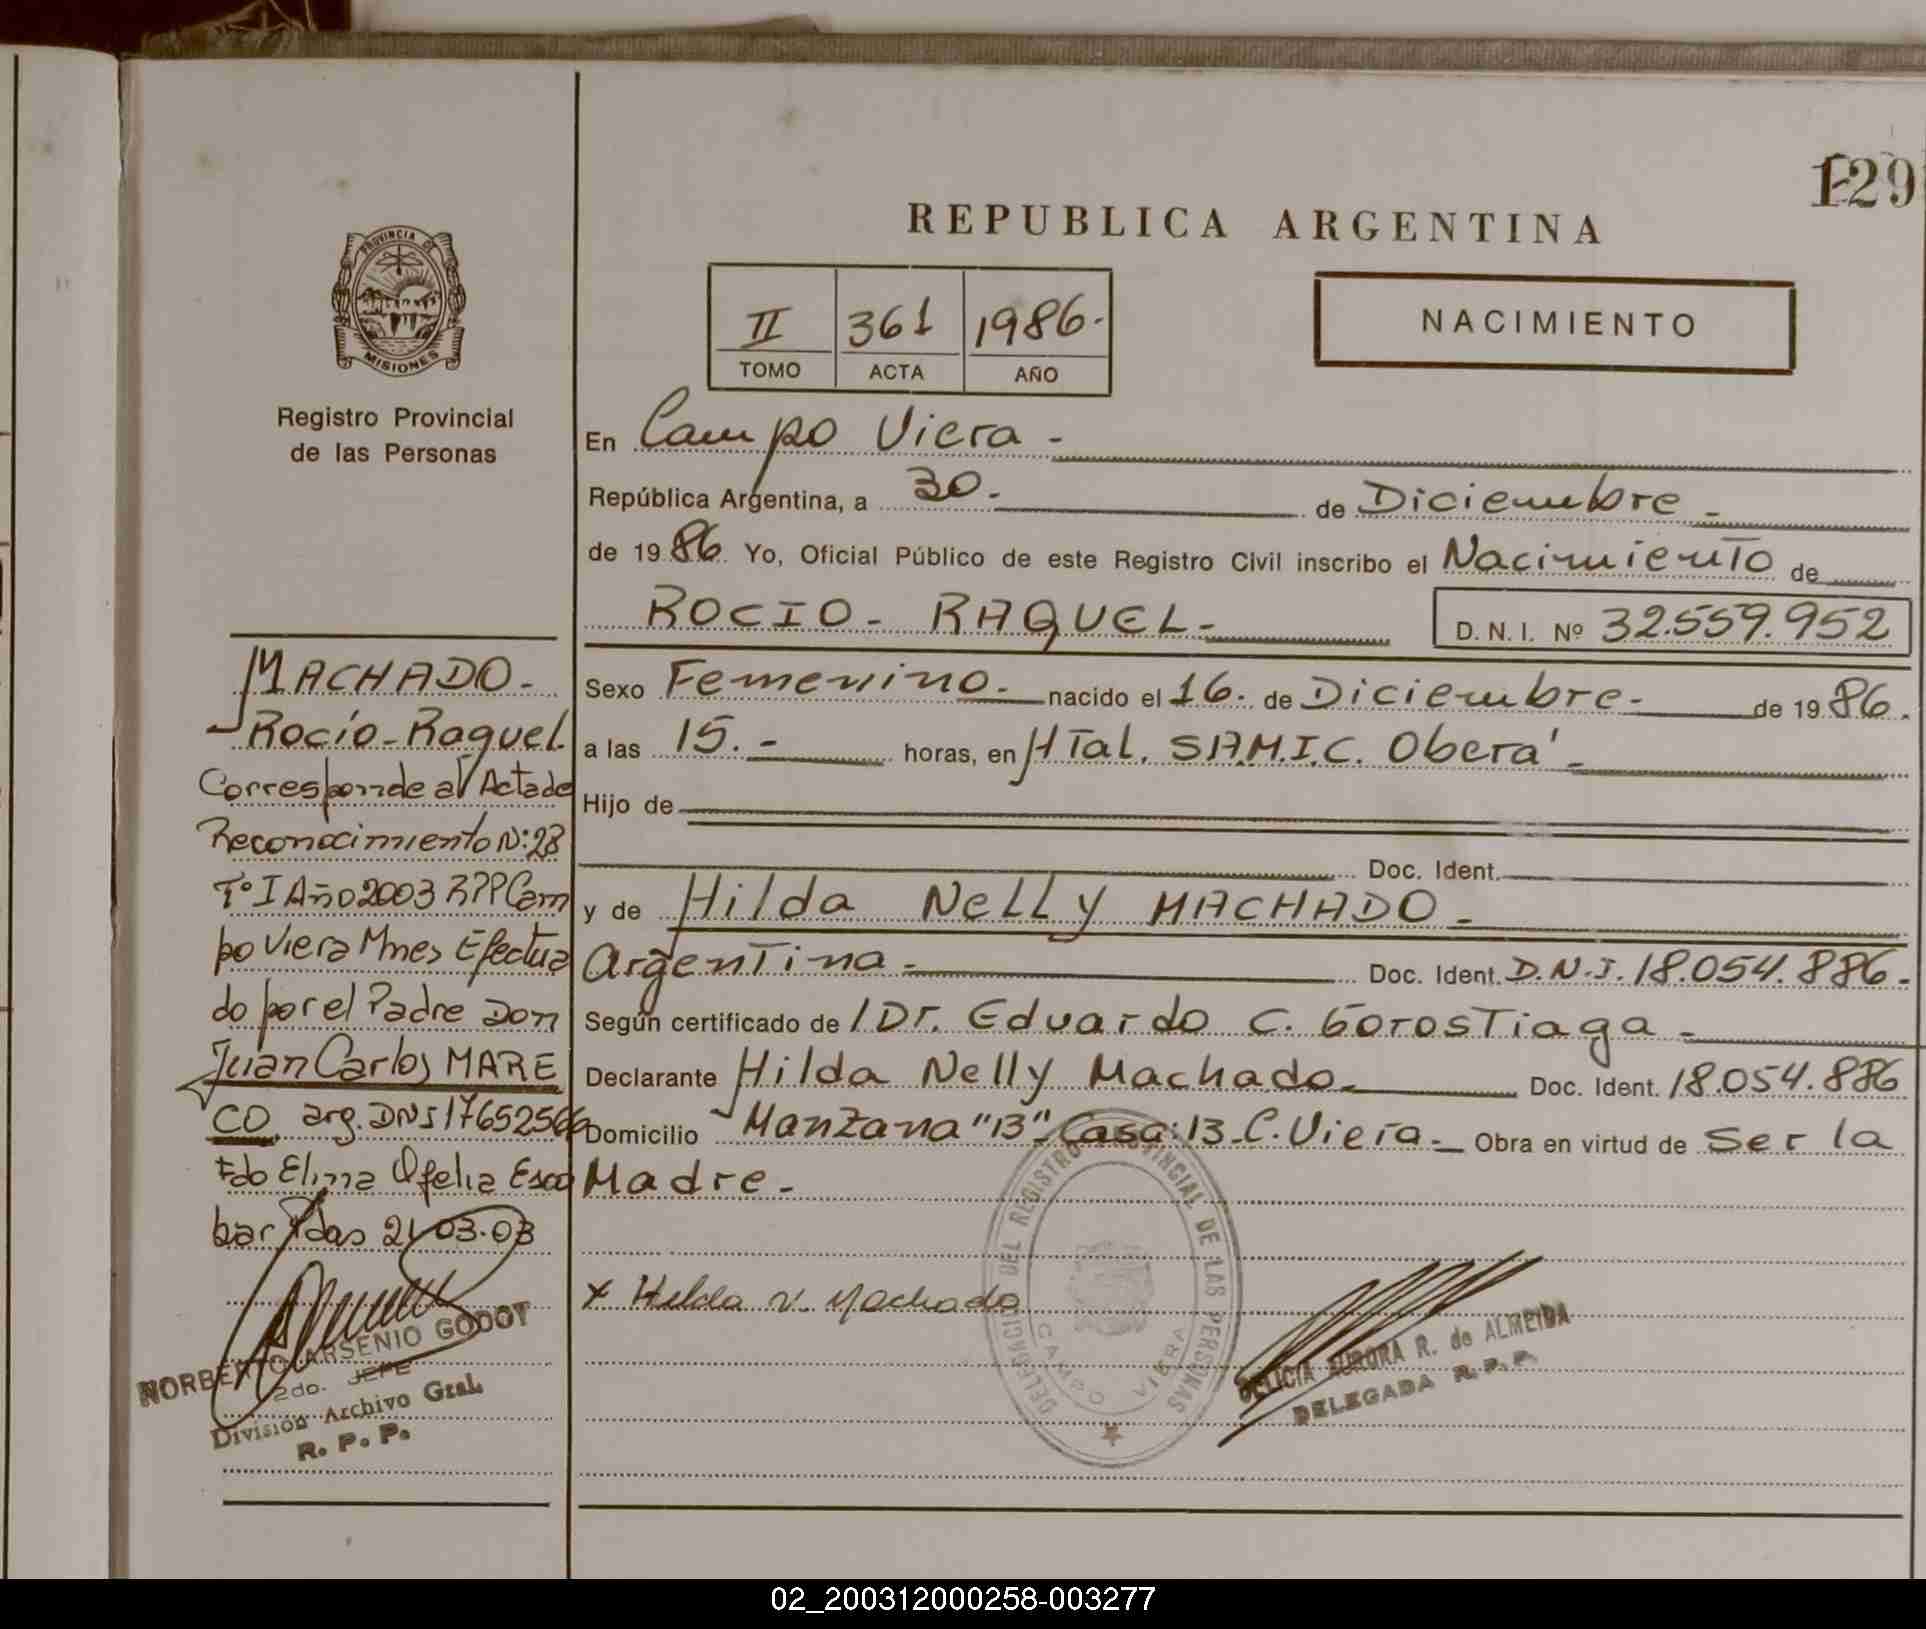 129
REPUBLICA ARGENTINA
PROVINCIA DE
MISIONES
Registro Provincial
de las Personas
II 361 1986.
TOMO ACTA AÑO
NACIMIENTO
En Campo Viera -
República Argentina, a 30. de Diciembre -
de 1986 Yo, Oficial Público de este Registro Civil inscribo el Nacimiento de
ROCIO - RAQUEL - D. N. I. Nº 32.559.952
Sexo Femenino. nacido el 16. de Diciembre - de 1986.
a las 15. - horas, en HTal. S.A.M.I.C. Oberá -
Hijo de
Doc. Ident.
y de Hilda Nelly MACHADO -
Argentina - Doc. Ident. D.N.I. 18.054.886.
Según certificado de Dr. Eduardo C. Gorostiaga -
Declarante Hilda Nelly Machado - Doc. Ident. 18.054.886
Domicilio Manzana "13" Casa: 13 - C. Viera - Obra en virtud de Ser la
Madre -
x Hilda N. Machado
DELEGACION DEL REGISTRO PROVINCIAL DE LAS PERSONAS
CAMPO VIERA
DELICIA AURORA R. de ALMEIDA
DELEGADA R. P. P.
MACHADO -
Rocío - Raquel
Corresponde al Acta de
Reconocimiento N: 28
Tº I Año 2003 RPP Cam
po Viera Mnes Efectua
do por el Padre Don
Juan Carlos MARE
CO arg. DNI 17652566
Fdo Elina Ofelia Esco
bar Pdas 21-03-03
NORBERTO ARSENIO GODOY
2do. JEFE
División Archivo Gral.
R. P. P.
02_200312000258-003277